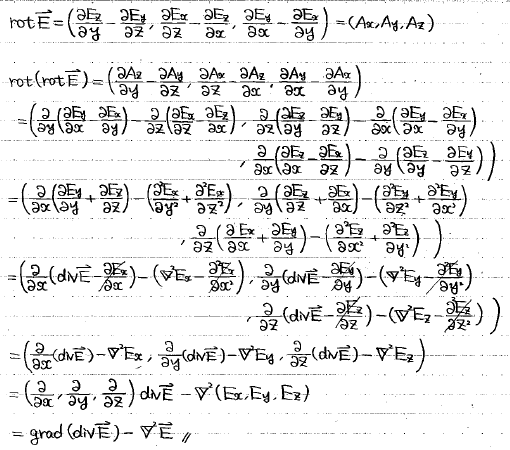 rot E⃗ = (∂Ez/∂y − ∂Ey/∂z, ∂Ex/∂z − ∂Ez/∂x, ∂Ey/∂x − ∂Ex/∂y) = (Ax, Ay, Az)
rot(rot E⃗) = (∂Az/∂y − ∂Ay/∂z, ∂Ax/∂z − ∂Az/∂x, ∂Ay/∂x − ∂Ax/∂y)
= (∂/∂y(∂Ey/∂x − ∂Ex/∂y) − ∂/∂z(∂Ex/∂z − ∂Ez/∂x), ∂/∂z(∂Ez/∂y − ∂Ey/∂z) − ∂/∂x(∂Ey/∂x − ∂Ex/∂y)
, ∂/∂x(∂Ex/∂z − ∂Ez/∂x) − ∂/∂y(∂Ez/∂y − ∂Ey/∂z))
= (∂/∂x(∂Ey/∂y + ∂Ez/∂z) − (∂²Ex/∂y² + ∂²Ex/∂z²), ∂/∂y(∂Ez/∂z + ∂Ex/∂x) − (∂²Ey/∂z² + ∂²Ey/∂x²)
, ∂/∂z(∂Ex/∂x + ∂Ey/∂y) − (∂²Ez/∂x² + ∂²Ez/∂y²))
= (∂/∂x(div E⃗ − ∂Ex/∂x) − (∇²Ex − ∂²Ex/∂x²), ∂/∂y(div E⃗ − ∂Ey/∂y) − (∇²Ey − ∂²Ey/∂y²)
, ∂/∂z(div E⃗ − ∂Ez/∂z) − (∇²Ez − ∂²Ez/∂z²))
= (∂/∂x(div E⃗) − ∇²Ex, ∂/∂y(div E⃗) − ∇²Ey, ∂/∂z(div E⃗) − ∇²Ez)
= (∂/∂x, ∂/∂y, ∂/∂z) div E⃗ − ∇²(Ex, Ey, Ez)
= grad(div E⃗) − ∇²E⃗ //